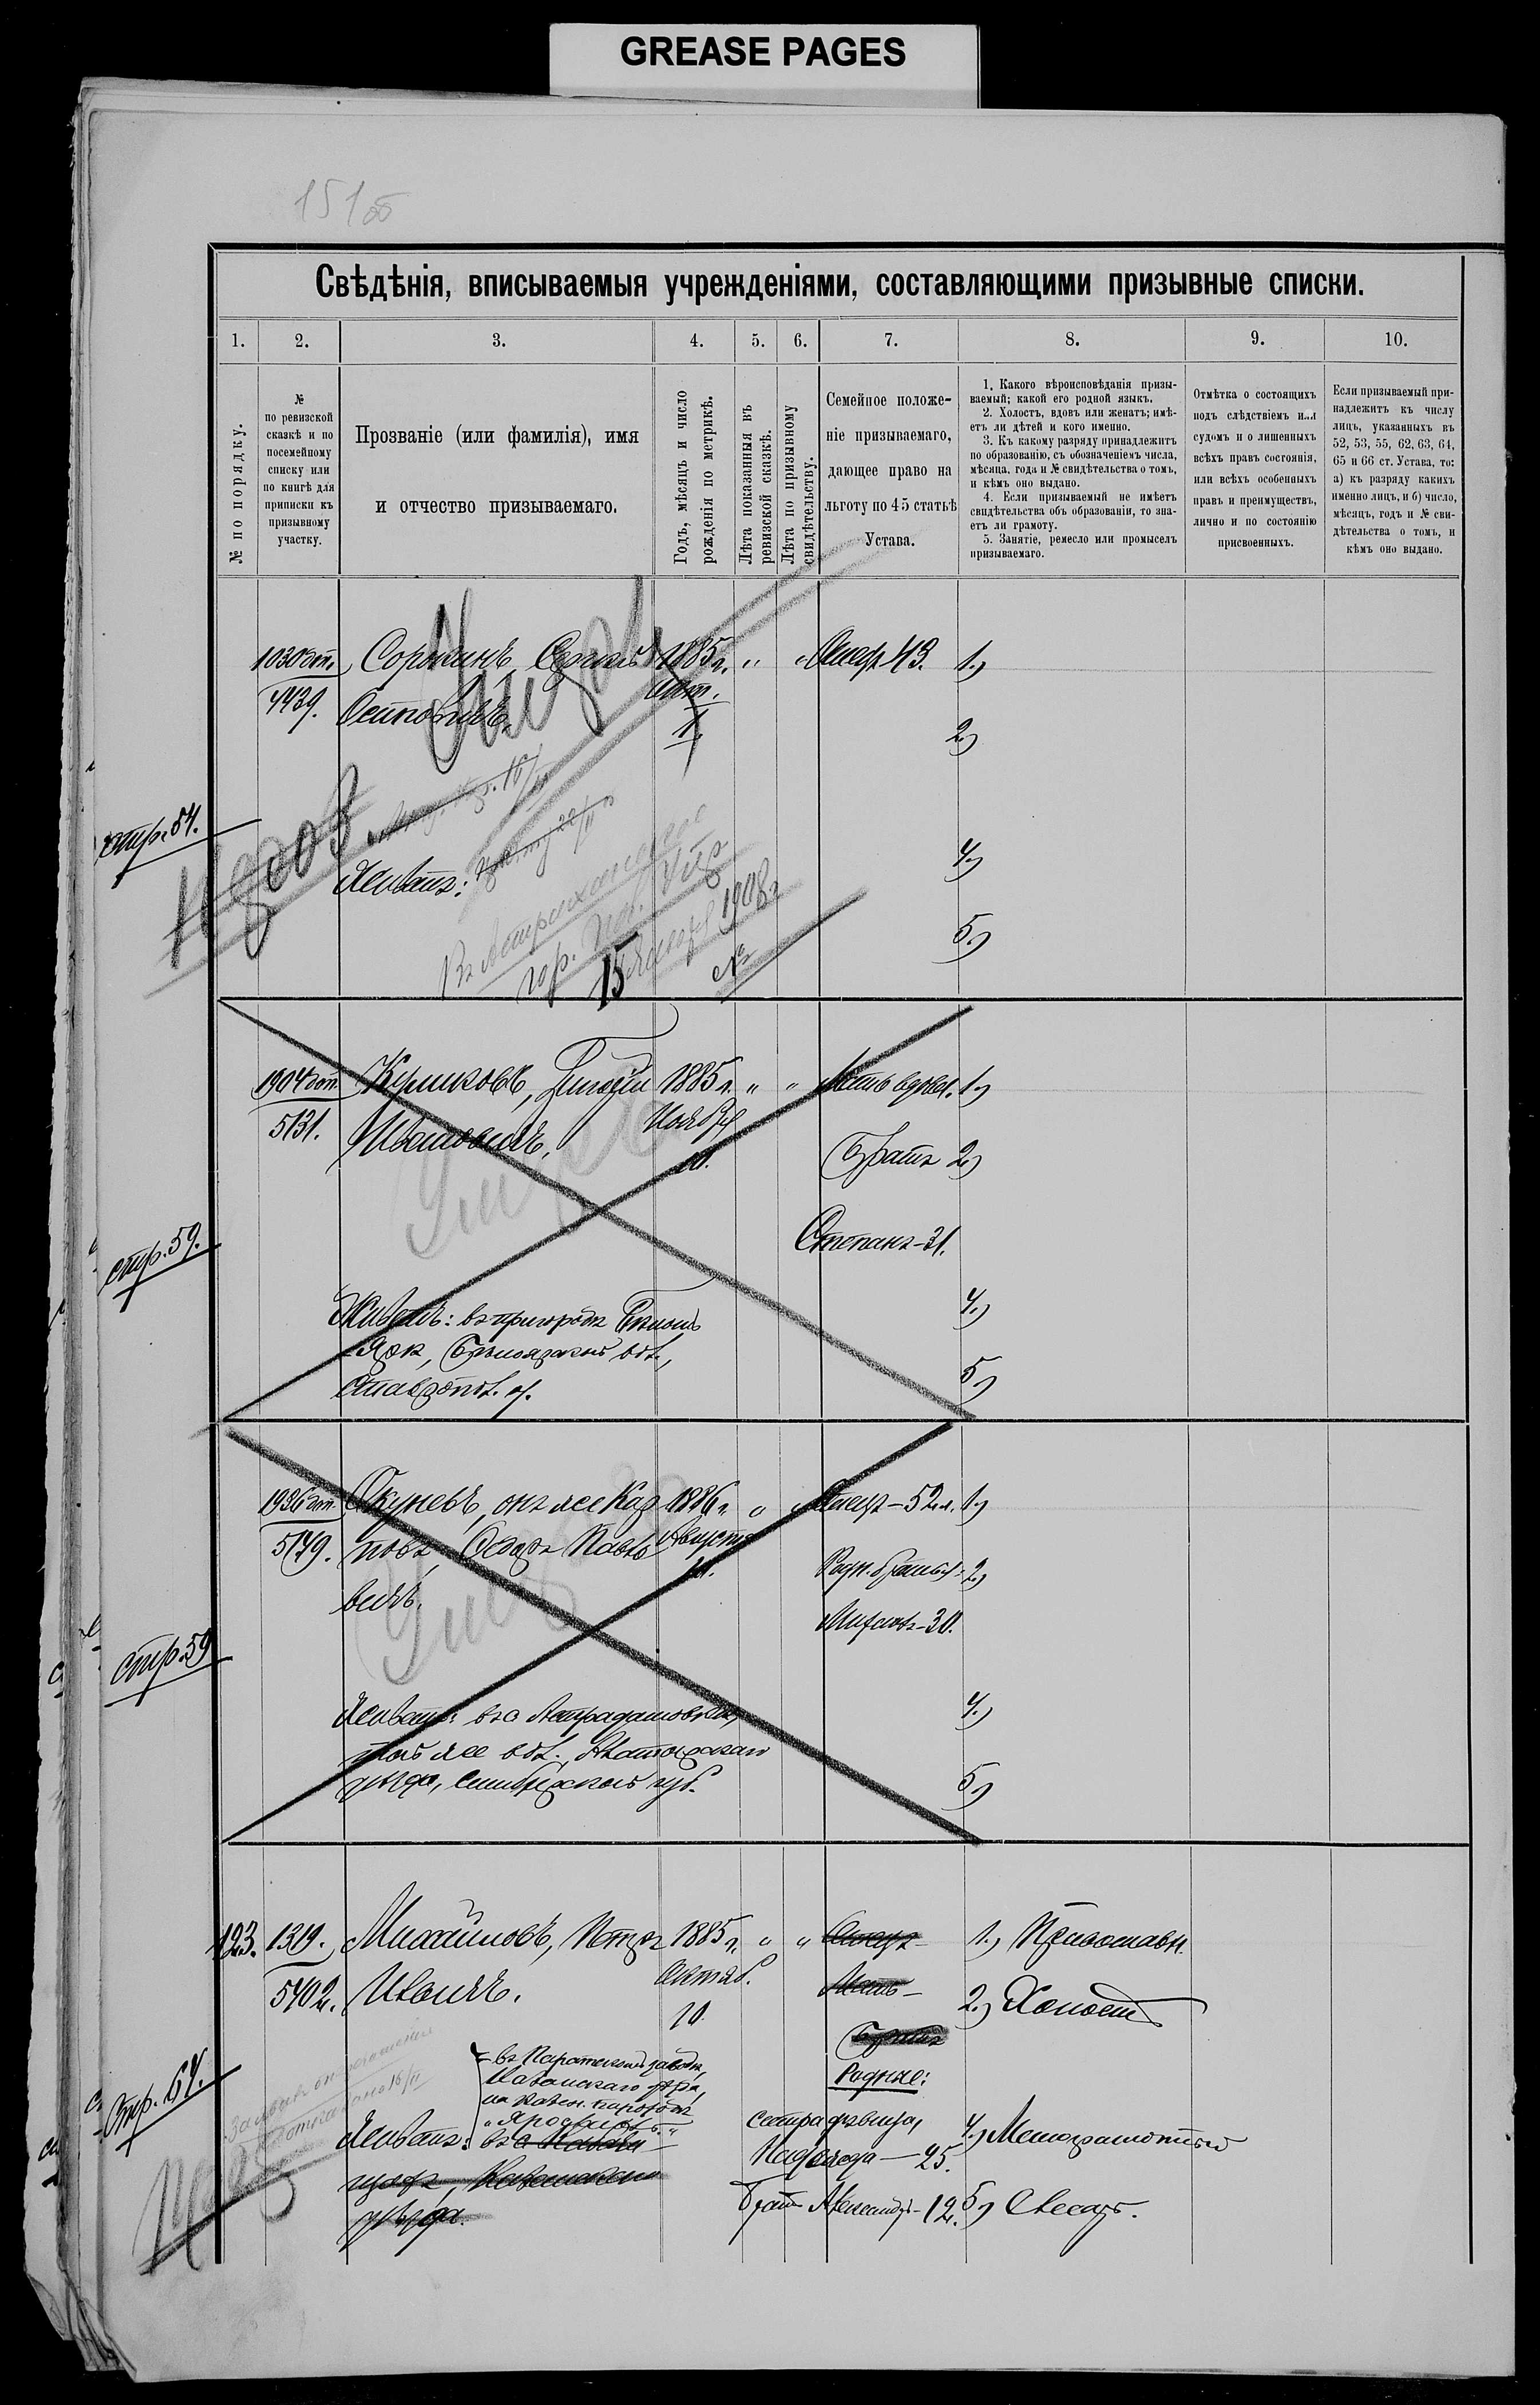 GREASE PAGES
151об
Свѣдѣнія, вписываемыя учрежденіями, составляющими призывные списки.
1. 2. 3. 4. 5. 6. 7. 8. 9. 10.
№ по порядку.
№
по ревизской
сказкѣ и по
посемейному
списку или
по книгѣ для
приписки къ
призывному
участку.
Прозваніе (или фамилія), имя
и отчество призываемаго.
Годъ, мѣсяцъ и число
рожденія по метрикѣ.
Лѣта показанныя въ
ревизской сказкѣ.
Лѣта по призывному
свидѣтельству.
Семейное положе-
ніе призываемаго,
дающее право на
льготу по 45 статьѣ
Устава.
1. Какого вѣроисповѣданія призы-
ваемый; какой его родной языкъ.
2. Холостъ, вдовъ или женатъ; имѣ-
етъ ли дѣтей и кого именно.
3. Къ какому разряду принадлежитъ
по образованію, съ обозначеніемъ числа,
мѣсяца, года и № свидѣтельства о томъ,
и кѣмъ оно выдано.
4. Если призываемый не имѣетъ
свидѣтельства объ образованіи, то зна-
етъ ли грамоту.
5. Занятіе, ремесло или промыселъ
призываемаго.
Отмѣтка о состоящихъ
подъ слѣдствіемъ или
судомъ и о лишенныхъ
всѣхъ правъ состоянія,
или всѣхъ особенныхъ
правъ и преимуществъ,
лично и по состоянію
присвоенныхъ.
Если призываемый при-
надлежитъ къ числу
лицъ, указанныхъ въ
52, 53, 55, 62, 63, 64,
65 и 66 ст. Устава, то:
а) къ разряду какихъ
именно лицъ, и б) число,
мѣсяцъ, годъ и № сви-
дѣтельства о томъ, и
кѣмъ оно выдано.
1030 доп. Сорокинъ, Сергѣй 1885 г. " " Отецъ 43. 1.)
4439. Осиповичъ. Окт.
1. 2.)
стр. 54.
Живетъ: 4.)
5.)
Въ Астраханское
гор. Пол. Упр
15 января 1908 г.
№
1904 доп. Куликовъ, 1885 г. " " Мать вдова. 1.)
5131. Ивановичъ, Ноября
10. Братъ 2.)
Умеръ
стр. 59. Степанъ-31.
Живетъ: въ пригородѣ Бѣломъ 4.)
Ярѣ, Бѣлоярской вол.,
Ставропол. у. 5.)
1926 доп. Окуневъ, онъ же Кар 1886 г. " Отецъ-52 л. 1.)
5179. повъ, Ѳедоръ Павло Августа
вичъ. 10. Родн. братья: 2.)
Умеръ
Михаилъ-30.
стр. 59
Живетъ: въ с. Астрадамовкѣ, 4.)
той же вол., Алатырскаго
уѣзда, Симбирской губ. 5.)
123. 1319. Михайловъ, Петръ 1885 г. " " Отецъ- 1.) Православн.
5402. Иванычъ. Октяб. Мать- 2.) Холостъ
10. Братъ
Родные:
стр. 64.
въ Паратскомъ заводѣ,
Казанскаго уѣзда,
Живетъ: въ с. сестра дѣвица, 4.) Малограмотный
Казанскаго Надежда-25.
уѣзда. Братъ Александръ-12. 5.) Слесарь.